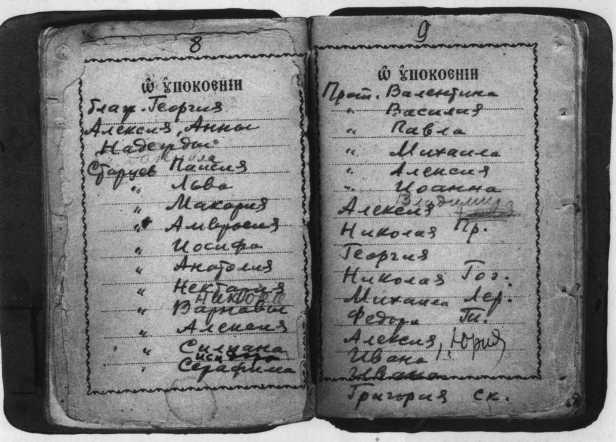 8
Ѿ ѹпокоенїи
Блаж. Георгия
Алексия, Анны
Надежды
Старцев Паисия
" Льва
" Макария
" Амвросия
" Иосифа
" Анатолия
" Нектария
" Варнавы
" Алексия
" Силуана
" Серафима
9
Ѿ ѹпокоенїи
Прот. Валентина
" Василия
" Павла
" Михаила
" Алексия
" Иоанна
Владимира
Алексия
Николая Пр.
Георгия
Николая Гог.
Михаила Лер.
Федора Т.
Алексия, Юрия
Ивана
Ивана
Григория Ск.